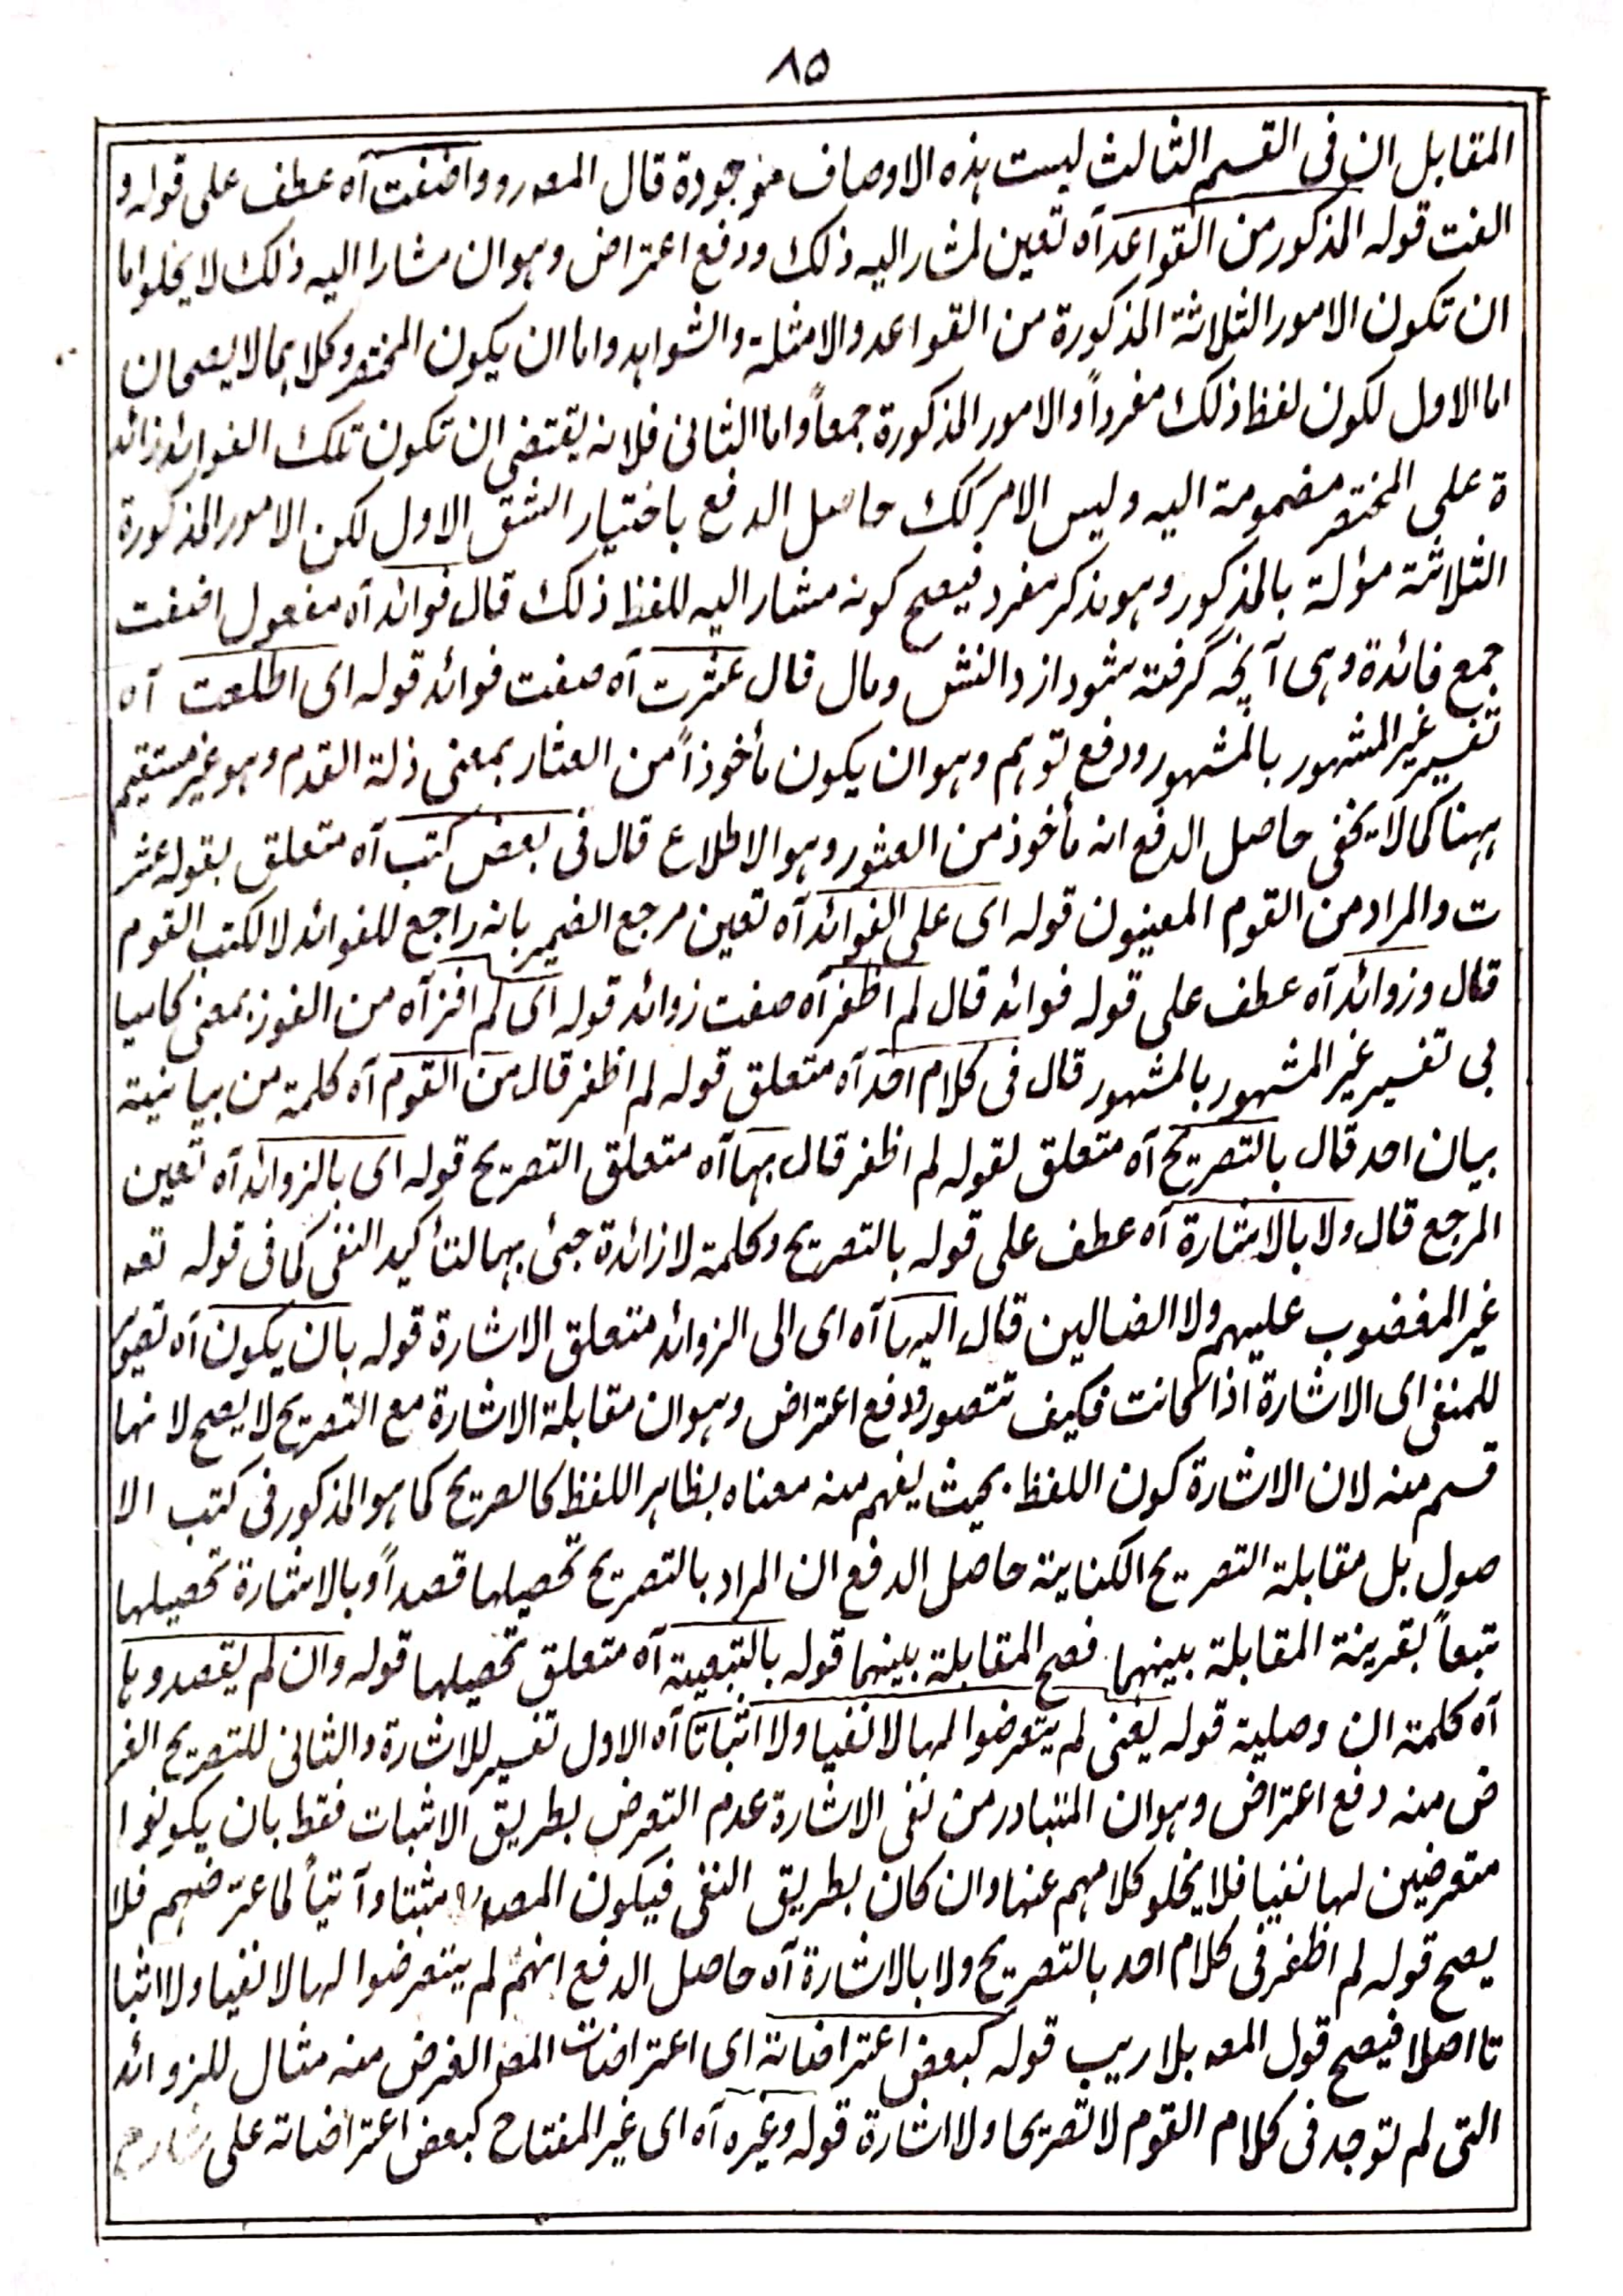 ٨٥
المقابل ان فى القسم الثالث ليست هذه الاوصاف موجودة قال المصرو واضفت آه عطف على قوله و
الفت قوله المذكور من القواعد آه تعين لمشار اليه ذلك ودفع اعتراض وهو ان مشارا اليه ذلك لا يخلو اما
ان تكون الامور الثلاثة المذكورة من القواعد والامثلة والشواهد واما ان يكون المختصر وكلاهما لا يصحان
اما الاول لكون لفظ ذلك مفرداً والامور المذكورة جمعاً واما الثانى فلانه يقتضى ان تكون تلك الفوائد زائد
ة على المختصر مضمومة اليه وليس الامر كك حاصل الدفع باختيار الشق الاول لكن الامور المذكورة
الثلاثة مؤلة بالمذكور وهو مذكر مفرد فيصح كونه مشار اليه للفظ ذلك قال فوائد آه مفعول اضفت
جمع فائدة وهى آنچه گرفته شود از دانش ومال قال عثرت آه صفت فوائد قوله اى اطلعت آه
تفسير غير المشهور بالمشهور ودفع توهم وهو ان يكون مأخوذاً من العثار بمعنى ذلة القدم وهو غير مستقيم
ههنا كما لا يخفى حاصل الدفع انه مأخوذ من العثور وهو الاطلاع قال فى بعض كتب آه متعلق بقوله عثر
ت والمراد من القوم المعينون قوله اى على الفوائد آه تعين مرجع الضمير بانه راجع للفوائد لا لكتب القوم
قال وزوائد آه عطف على قوله فوائد قال لم اظفر آه صفت زوائد قوله اى لم افز آه من الفوز بمعنى كاميا
بى تفسير غير المشهور بالمشهور قال فى كلام احد آه متعلق قوله لم اظفر قال من القوم آه كلمة من بيانية
بيان احد قال بالتصريح آه متعلق لقوله لم اظفر قال بها آه متعلق التصريح قوله اى بالزوائد آه تعين
المرجع قال ولا بالاشارة آه عطف على قوله بالتصريح وكلمة لا زائدة جئ بها لتأكيد النفى كما فى قوله تعه
غير المغضوب عليهم ولا الضالين قال اليها آه اى الى الزوائد متعلق الاشارة قوله بان يكون آه تصوير
للمنفى اى الاشارة اذا كانت فكيف تتصور ودفع اعتراض وهو ان مقابلة الاشارة مع التصريح لا يصح لانها
قسم منه لان الاشارة كون اللفظ بحيث يفهم منه معناه بظاهر اللفظ كالصريح كما هو المذكور فى كتب الا
صول بل مقابلة التصريح الكناية حاصل الدفع ان المراد بالتصريح تحصيلها قصداً وبالاشارة تحصيلها
تبعاً بقرينة المقابلة بينهما فصح المقابلة بينهما قوله بالتبعية آه متعلق تحصيلها قوله وان لم يقصدوها
آه كلمة ان وصلية قوله يعنى لم يتعرضوا لها لا نفيا ولا اثباتا آه الاول تفسير للاشارة والثانى للتصريح الغر
ض منه دفع اعتراض وهو ان المتبادر من نفى الاشارة عدم التعرض بطريق الاثبات فقط بان يكونوا
متعرضين لها نفيا فلا يخلو كلامهم عنها وان كان بطريق النفى فيكون المصه مثبتا وآتياً لما عترضهم فلا
يصح قوله لم اظفر فى كلام احد بالتصريح ولا بالاشارة آه حاصل الدفع انهم لم يتعرضوا لها لا نفيا ولا اثبا
تا اصلا فيصح قول المصه بلا ريب قوله كبعض اعتراضاته اى اعتراضات المص الغرض منه مثال للزوائد
التى لم توجد فى كلام القوم لا تصريحا ولا اشارة قوله وغيره آه اى غير المفتاح كبعض اعتراضاته على